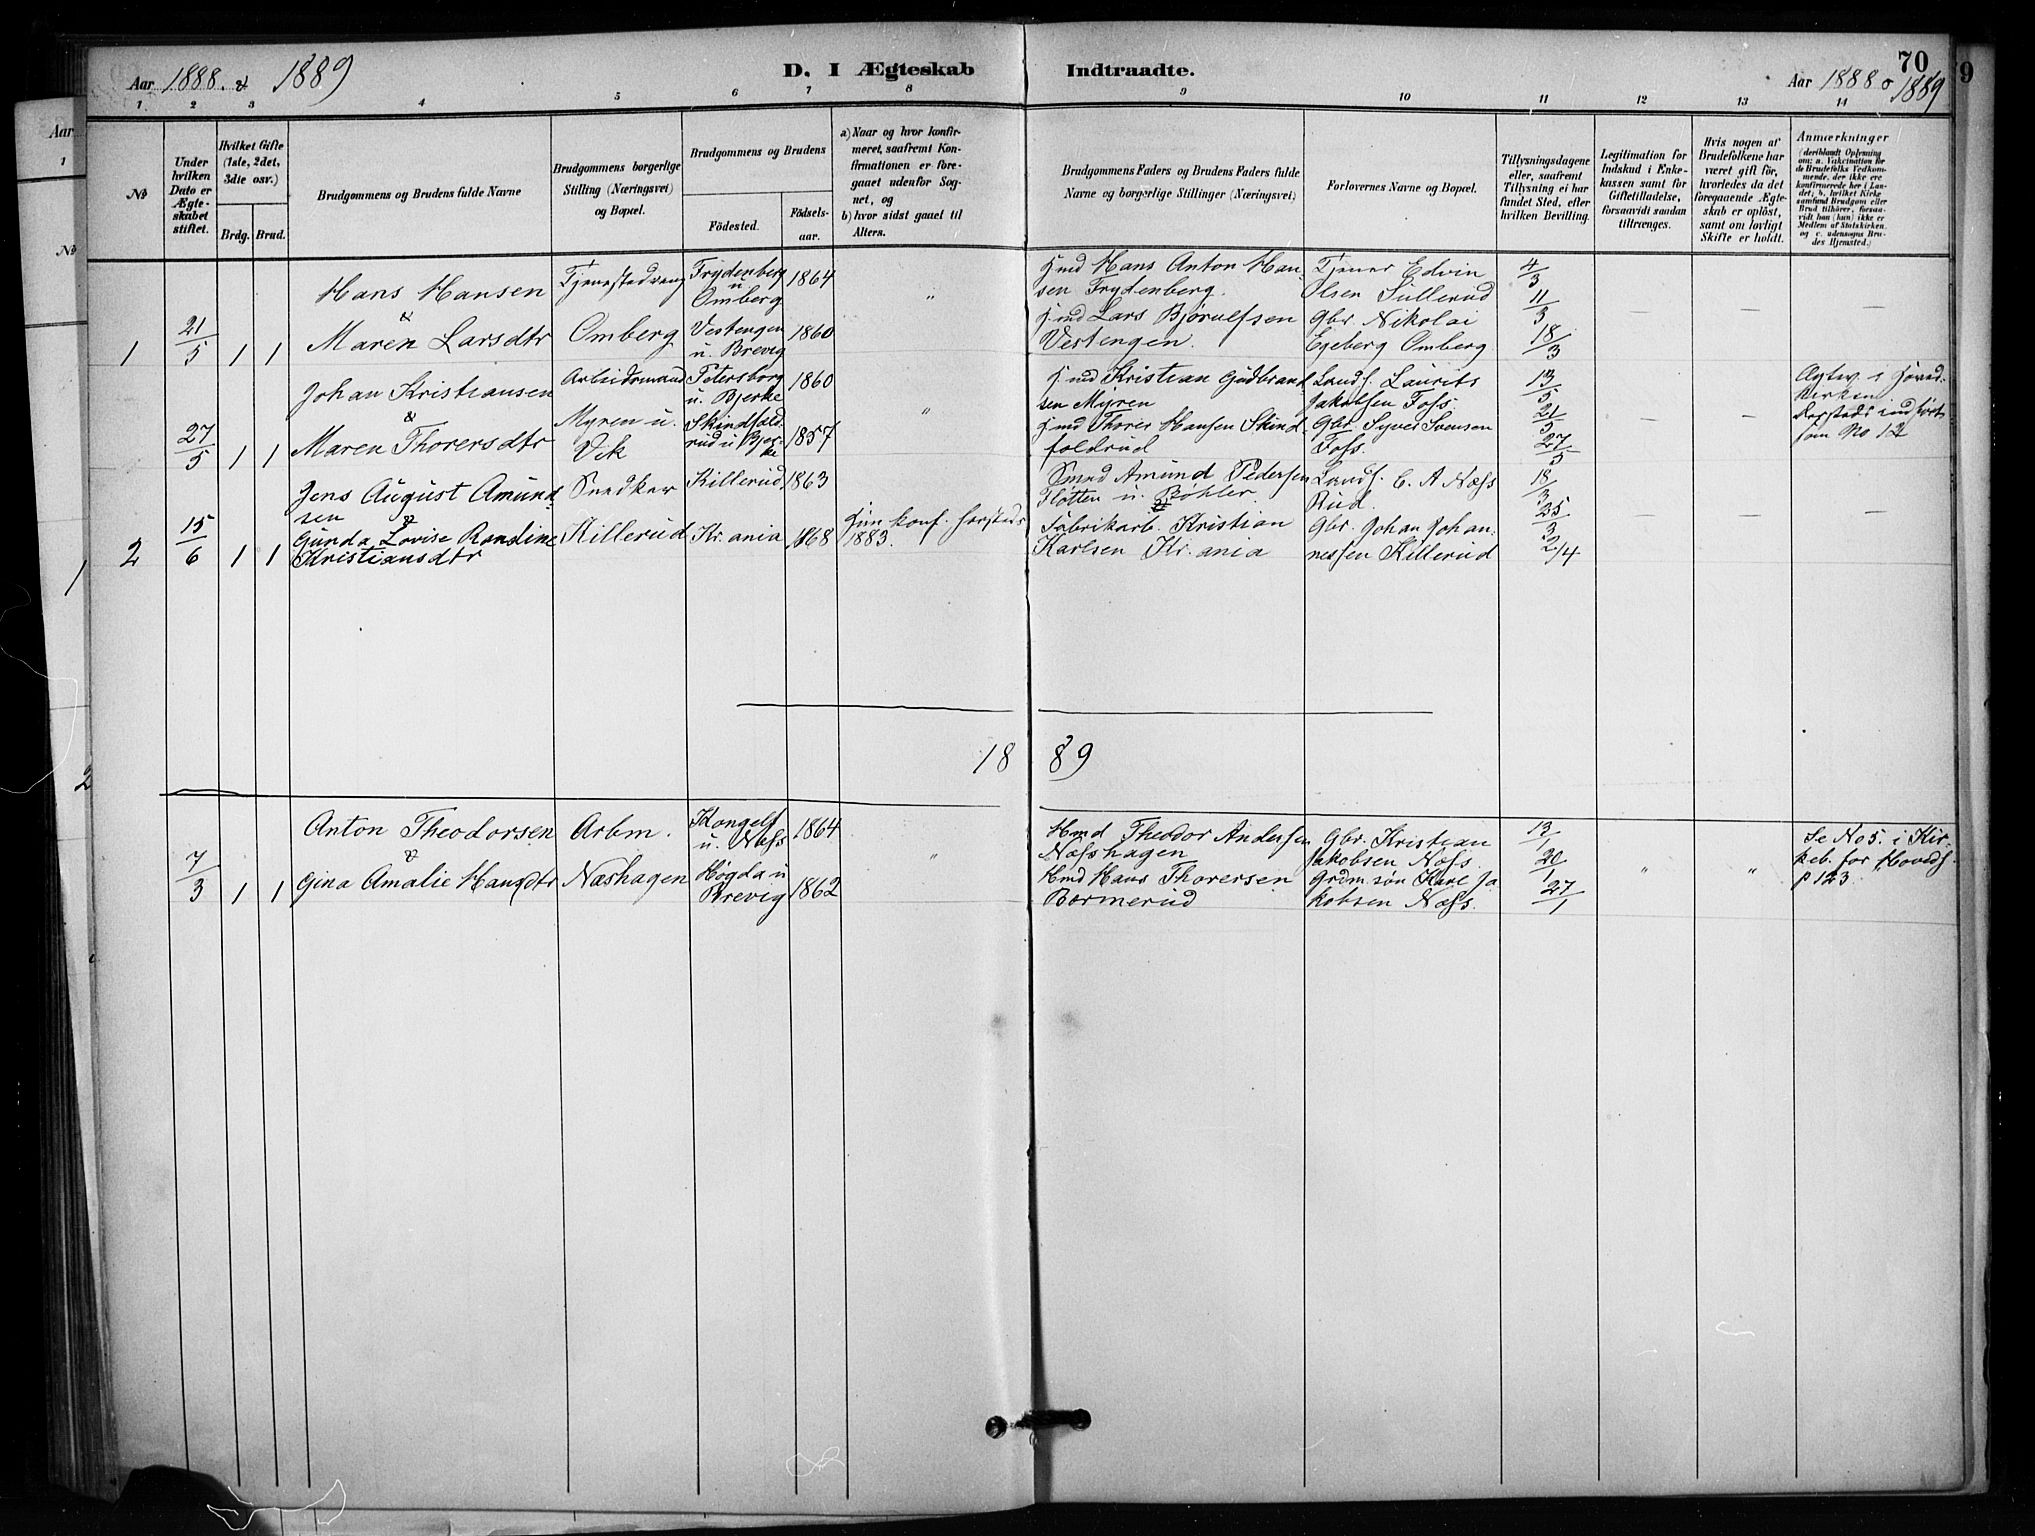 Aar 1888. & 1889
D. I Ægteskab Indtraadte.
70
Aar 1888 o 1889
9
1. 2 3 4 5 6 7 8 9 10 11 12 13 14
No
Under hvilken Dato er Ægteskabet stiftet.
Hvilket Gifte (1ste, 2det, 3die osv.)
Brdg. Brud.
Brudgommens og Brudens fulde Navne
Brudgommens borgerlige Stilling (Næringsvei) og Bopæl.
Brudgommens og Brudens
Födested.
Födselsaar.
a) Naar og hvor konfirmeret, saafremt Konfirmationen er foregaaet udenfor Sognet, og
b) hvor sidst gaaet til Alters.
Brudgommens Faders og Brudens Faders fulde Navne og borgerlige Stillinger (Næringsvei)
Forlovernes Navne og Bopæl.
Tillysningsdagene eller, saafremt Tillysning ei har fundet Sted, efter hvilken Bevilling.
Legitimation for Indskud i Enkekassen samt for Giftetilladelse, forsaavidt saadan tiltrænges.
Hvis nogen af Brudefolkene har været gift för, hvorledes da det foregaaende Ægteskab er oplöst, samt om lovligt Skifte er holdt.
Anmærkninger (deriblandt Oplysning om: a. Vakcination for de Brudefolks Vedkommende, der ikke ere konfirmerede her i Landet; b. hvilket Kirkesamfund Brudgom eller Brud tilhörer, forsaavidt han (hun) ikke er Medlem af Statskirken, og c. udensogns Brudes Hjemsted.)
1 21/5 1 1
Hans Hansen
&
Maren Larsdtr
Tjenestedreng
Omberg
Frydenberg u Omberg 1864
Vestengen u. Brevig 1860
"
Hmd Hans Anton Hansen Frydenberg.
Hmd Lars Bjørulfsen Vestengen.
Tjener Edvin Olsen Sullerud
Gbr. Nikolai Egeberg Omberg
4/3 11/3 18/3
27/5 1 1
Johan Kristiansen
&
Maren Thorersdtr
Arbeidsmand
Myren u. Vik
Petersborg u. Bjerke 1860
Skindfoldrud u Bjerke 1857
"
Hmd Kristian Gudbrandsen Myren
Hmd Thorer Hansen Skindfoldrud
Landh. Laurits Jakobsen Foss
Gbr. Syver Svensen Foss.
13/5 21/5 27/5
Ægtev. i Hovedkirken
Horsteds indført som No 12
2 15/6 1 1
Jens August Amundsen
&
Gunda Lovise Randine Kristiansdtr
Snedker
Killerud
Killerud 1863
Kr. ania 1868
Hun konf. Horsteds 1883.
Smed Amund Pedersen Fløtten u. Bøhler.
Fabrikarb. Kristian Karlsen Kr. ania
Landh. C. A Næss Rud.
Gbr. Johan Johannessen Killerud
18/3 25/3 2/4
1889
7/3 1 1
Anton Theodorsen
&
Gina Amalie Hansdtr
Arbm.
Næshagen
Kongelf u. Næss 1864
Høgda u Brevig 1862
"
Hmd Theodor Andersen Næsshagen
Hmd Hans Thorersen Bormerud
Gbr. Kristian Jakobsen Næss.
Grdm. søn Karl Jakobsen Næss.
13/1 20/1 27/1
" "
Se No 5. i Kirkeb. for Hoveds. p 123.